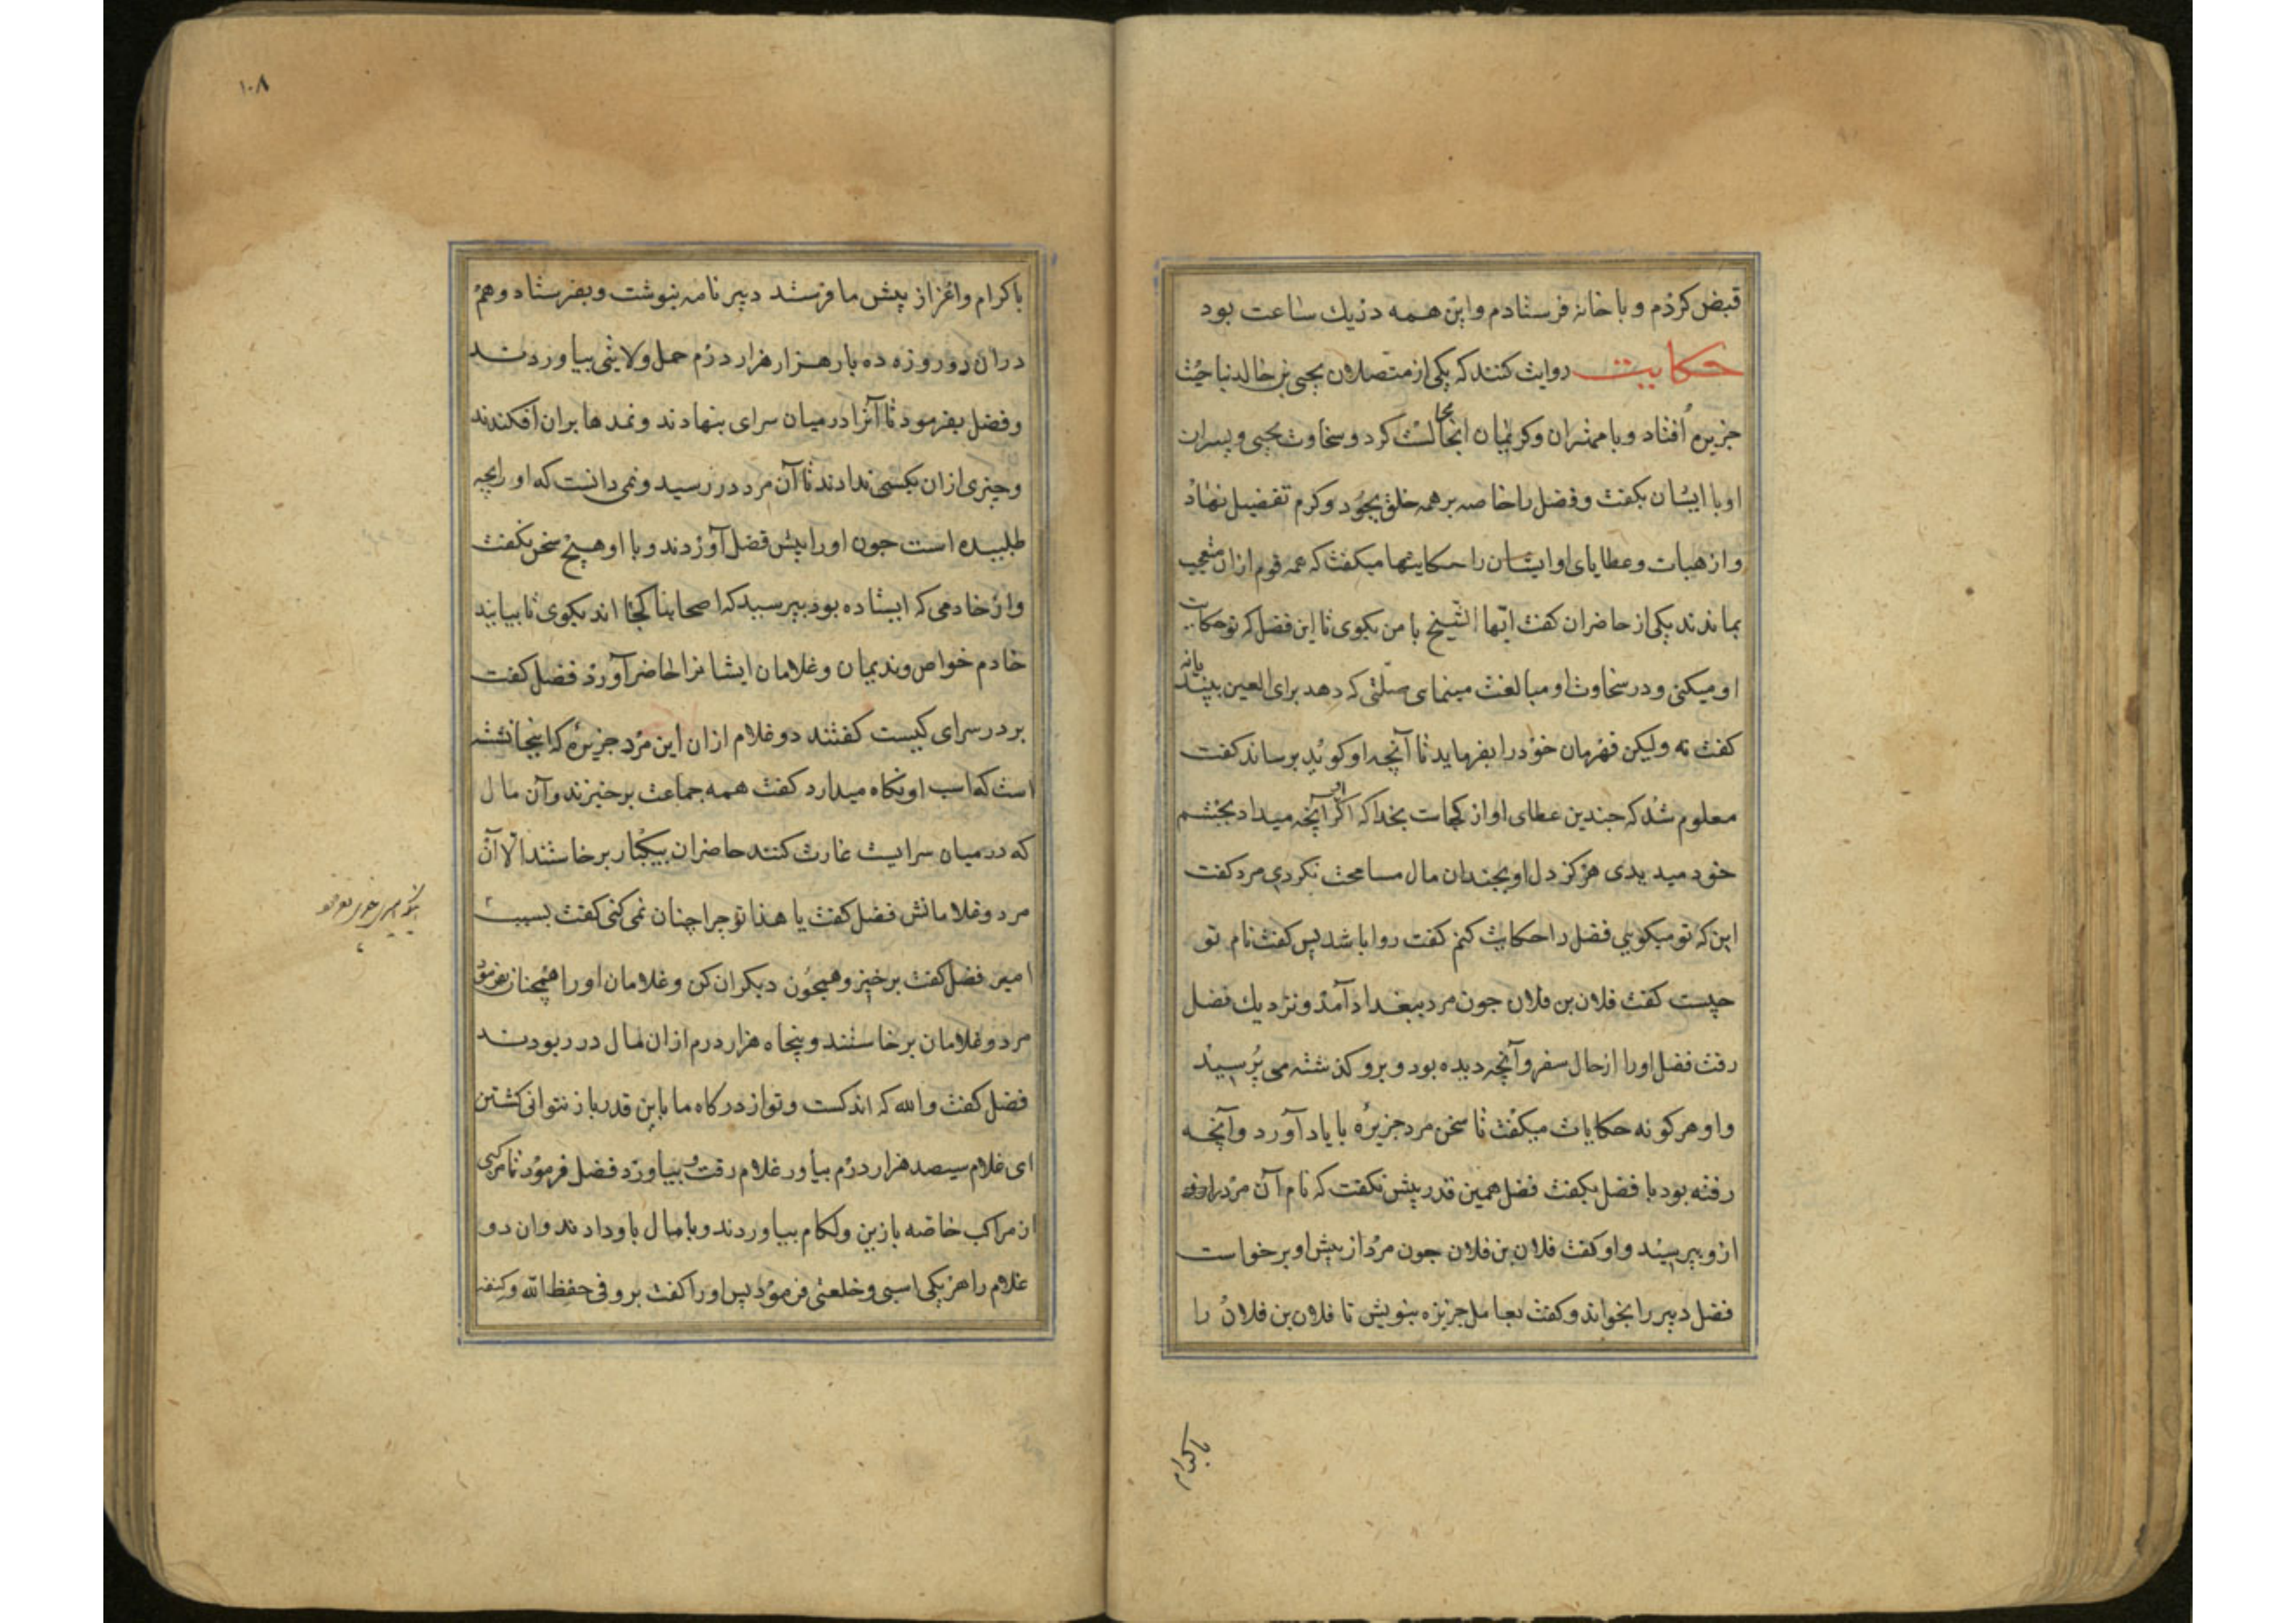 قبض کردم و با خانه فرستادم و این همه در یك ساعت بود
حکایت روایت کنند که یکی از متصلان یحیی بن خالد بناحیت
جزیره اُفتاد و با مهتران و کریمان انجا مجالست کرد و سخاوت یحیی و پسران
او با ایشان بگفت و فضل را خاصه بر همه خلق بجود و کرم تفضیل نهاد
و از هبات و عطایای او ایشان را حکایتها میکفت که همه قوم ازان متعجب
بماندند یکی از حاضران کفت ایّها الشیخ با من بکوی تا این فضل که تو حکایت
او میکنی و در سخاوت او مبالغت مینمای صلتی که دهد برای العین بیند یا نه
کفت نه ولیکن قهرمان خود را بفرماید تا آنچه او کوید برساند کفت
معلوم شد که جندین عطای او از کجاست بخدا که اکر او آنچه میداد بچشم
خود میدیدی هرکز دل او بجندان مال مسامحت نکردی مرد کفت
این که تو میکویی فضل را حکایت کنم کفت روا باشد پس کفت نام تو
چیست کفت فلان بن فلان جون مرد ببغداد آمد و نزدیك فضل
رفت فضل او را از حال سفر و آنچه دیده بود و برو کذشته می پُرسید
و او هر کونه حکایات میکفت تا سخن مرد جزیره با یاد آورد و آنچه
رفته بود با فضل بکفت فضل همین قدر بیش نکفت که نام آن مرد
ازو بپرسید و او کفت فلان بن فلان جون مرد از پیش او برخواست
فضل دبیر را بخواند و کفت بعامل جزیزه بنویش تا فلان بن فلان را
باکرام
۱۰۸
باکرام و اعزاز پیش ما فرستد دبیر نامه بنوشت و بفرستاد و هم
دران دو روزه ده بار هزار هزار درم حمل ولایتی بیاوردند
و فضل بفرمود تا آنرا در میان سرای بنهادند و نمدها بران افکندند
و چیزی ازان بکسی ندادند تا آن مرد در رسید و نمی دانست که او را بچه
طلبیده است جون او را پیش فضل آوردند و با او هیچ سخن نکفت
و از خادمی که ایستاده بود بپرسید که اصحابنا کجا اند بکوی تا بیایند
خادم خواص و ندیمان و غلامان ایشانرا حاضر آورد فضل کفت
بر در سرای کیست کفتند دو غلام ازان این مرد جزیره که اینجا نشسته
است که اسب او نکاه میدارد کفت همه جماعت برخیزند و آن مال
که در میان سرایست غارت کنند حاضران بیکبار برخاستند الّا آن
مرد و غلامانش فضل کفت یا هذا تو چرا چنان نمی کنی کفت بسبب
امیر فضل کفت برخیز و همچون دیکران کن و غلامان او را همچنان بفرمود
مرد و غلامان برخاستند و پنجاه هزار درم ازان مال در ربودند
فضل کفت والله که اندکست و تو از درکاه ما باین قدر باز نتوانی کشتن
ای غلام سیصد هزار درم بیاور غلام رفت و بیاورد فضل فرمود تا مرکبی
از مراکب خاصّه با زین و لکام بیاوردند و با مال باو دادند و ان دو
غلام را هر یکی اسبی و خلعتی فرمود پس او را کفت برو فی حفظ الله و کنفه